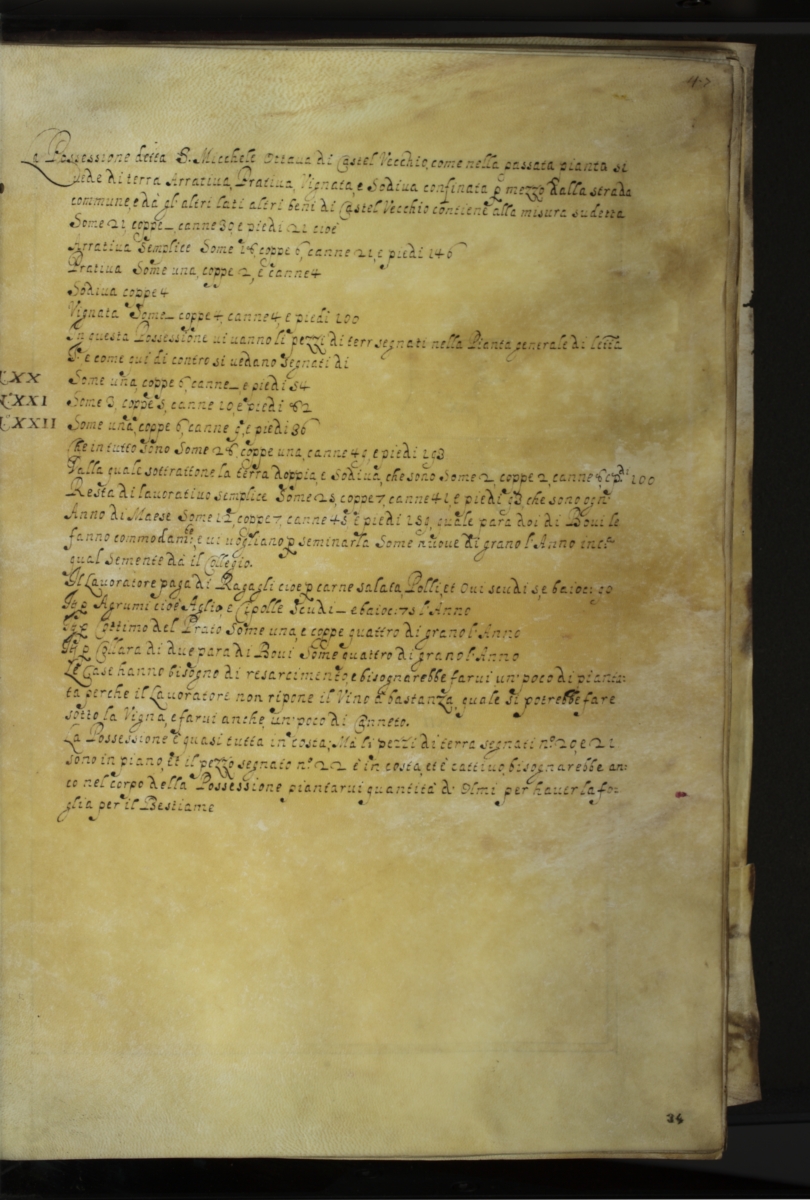 47
La Possessione detta S. Micchele Ottaua di Castel Vecchio, come nella passata pianta si
uede di terra Arratiua, Pratiua, Vignata, e Sodiua confinata p mezzo dalla strada
commune, e dà gl'altri lati altri beni di Castel Vecchio contiene alla misura sudetta
Some 21 coppe_ canne 39, e piedi 21 cioè
Arratiua Semplice Some 18, coppe 6, canne 21, e piedi 146
Pratiua Some una, coppe 2, e canne 4
Sodiua coppe 4
Vignata Some_ coppe 4, canne 4, e piedi 100
In questa Possessione ui uanno li pezzi di terr segnati nella Pianta generale di
e come qui di contro si uedano Segnati di
XX Some una, coppe 6, canne_ e piedi 54
XXI Some 3, coppe 5, canne 10, e piedi 82
XXII Some una, coppe 6, canne 9, e piedi 36
Che in tutto sono Some 28, coppe una, canne e piedi 193
Dalla quale sottrattone la terra doppia, e Sodiua, che sono Some 2, coppe 2, canne 100
Resta di lauoratiuo semplice Some 25, coppe 7, canne 41, e piedi che sono ogn'
Anno di Maese Some 12, coppe 7, canne 45 e piedi 150, quale para doi di Boui le
fanno commodamte, e ui uogliano p seminarla Some nuoue di grano l'Anno
qual Semente dà il Collegio.
Il Lauoratore paga di Regagli cioe p carne salata, Polli, et Oui scudi baioc: 50
p Agrumi cioè Aglio, e Cipolle Scudi_ e baioc: 75 l'Anno
p Cottimo del Prato Some una, e coppe quattro di grano l'Anno
p Collara di due para di Boui Some quattro di grano l'Anno
Le Case hanno bisogno di resarcimento, e bisognarebbe farui un' poco di pianta=
ta perche il Lauoratore non ripone il Vino à bastanza, quale si potrebbe fare
sotto la Vigna, e farui anche un' poco di Canneto.
La Possessione è quasi tutta in costa; Ma li pezzi di terra segnati n.° 20, e 21
sono in piano, Et il pezzo segnato n.° 22 è in costa, et è cattiuo, bisognarebbe an=
co nel corpo della Possessione piantarui quantità d' Olmi per hauer la fo=
glia per il Bestiame
34